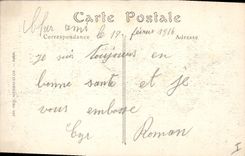 Carte Postale
Correspondance Adresse
Cher ami le 17 février 1916
Je suis toujours en
bonne santé et je
vous embrasse
Roman